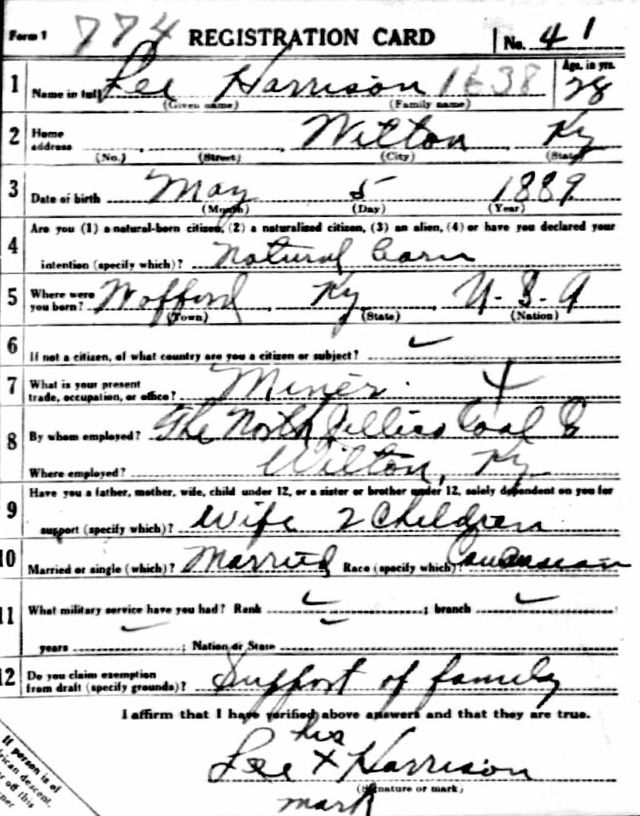 Form 1 774 REGISTRATION CARD No. 41
1 Name in full Lee Harrison 1638 Age, in yrs. 28
(Given name) (Family name)
2 Home address Wilton Ky
(No.) (Street) (City) (State)
3 Date of birth May 5 1889
(Month) (Day) (Year)
4 Are you (1) a natural-born citizen, (2) a naturalized citizen, (3) an alien, (4) or have you declared your
intention (specify which)? Natural born
5 Where were you born? Wofford Ky U.S.A
(Town) (State) (Nation)
6 If not a citizen, of what country are you a citizen or subject? ✓
7 What is your present trade, occupation, or office? Miner X
8 By whom employed? The North Jellico Coal Co
Where employed? Wilton, Ky
9 Have you a father, mother, wife, child under 12, or a sister or brother under 12, solely dependent on you for
support (specify which)? Wife 2 Children
10 Married or single (which)? Married Race (specify which) Caucasian
11 What military service have you had? Rank ✓ ; branch ✓
years ✓ ; Nation or State ✓
12 Do you claim exemption from draft (specify grounds)? Support of family
I affirm that I have verified above answers and that they are true.
his
Lee X Harrison
(Signature or mark)
mark
If person is of
African descent,
off this